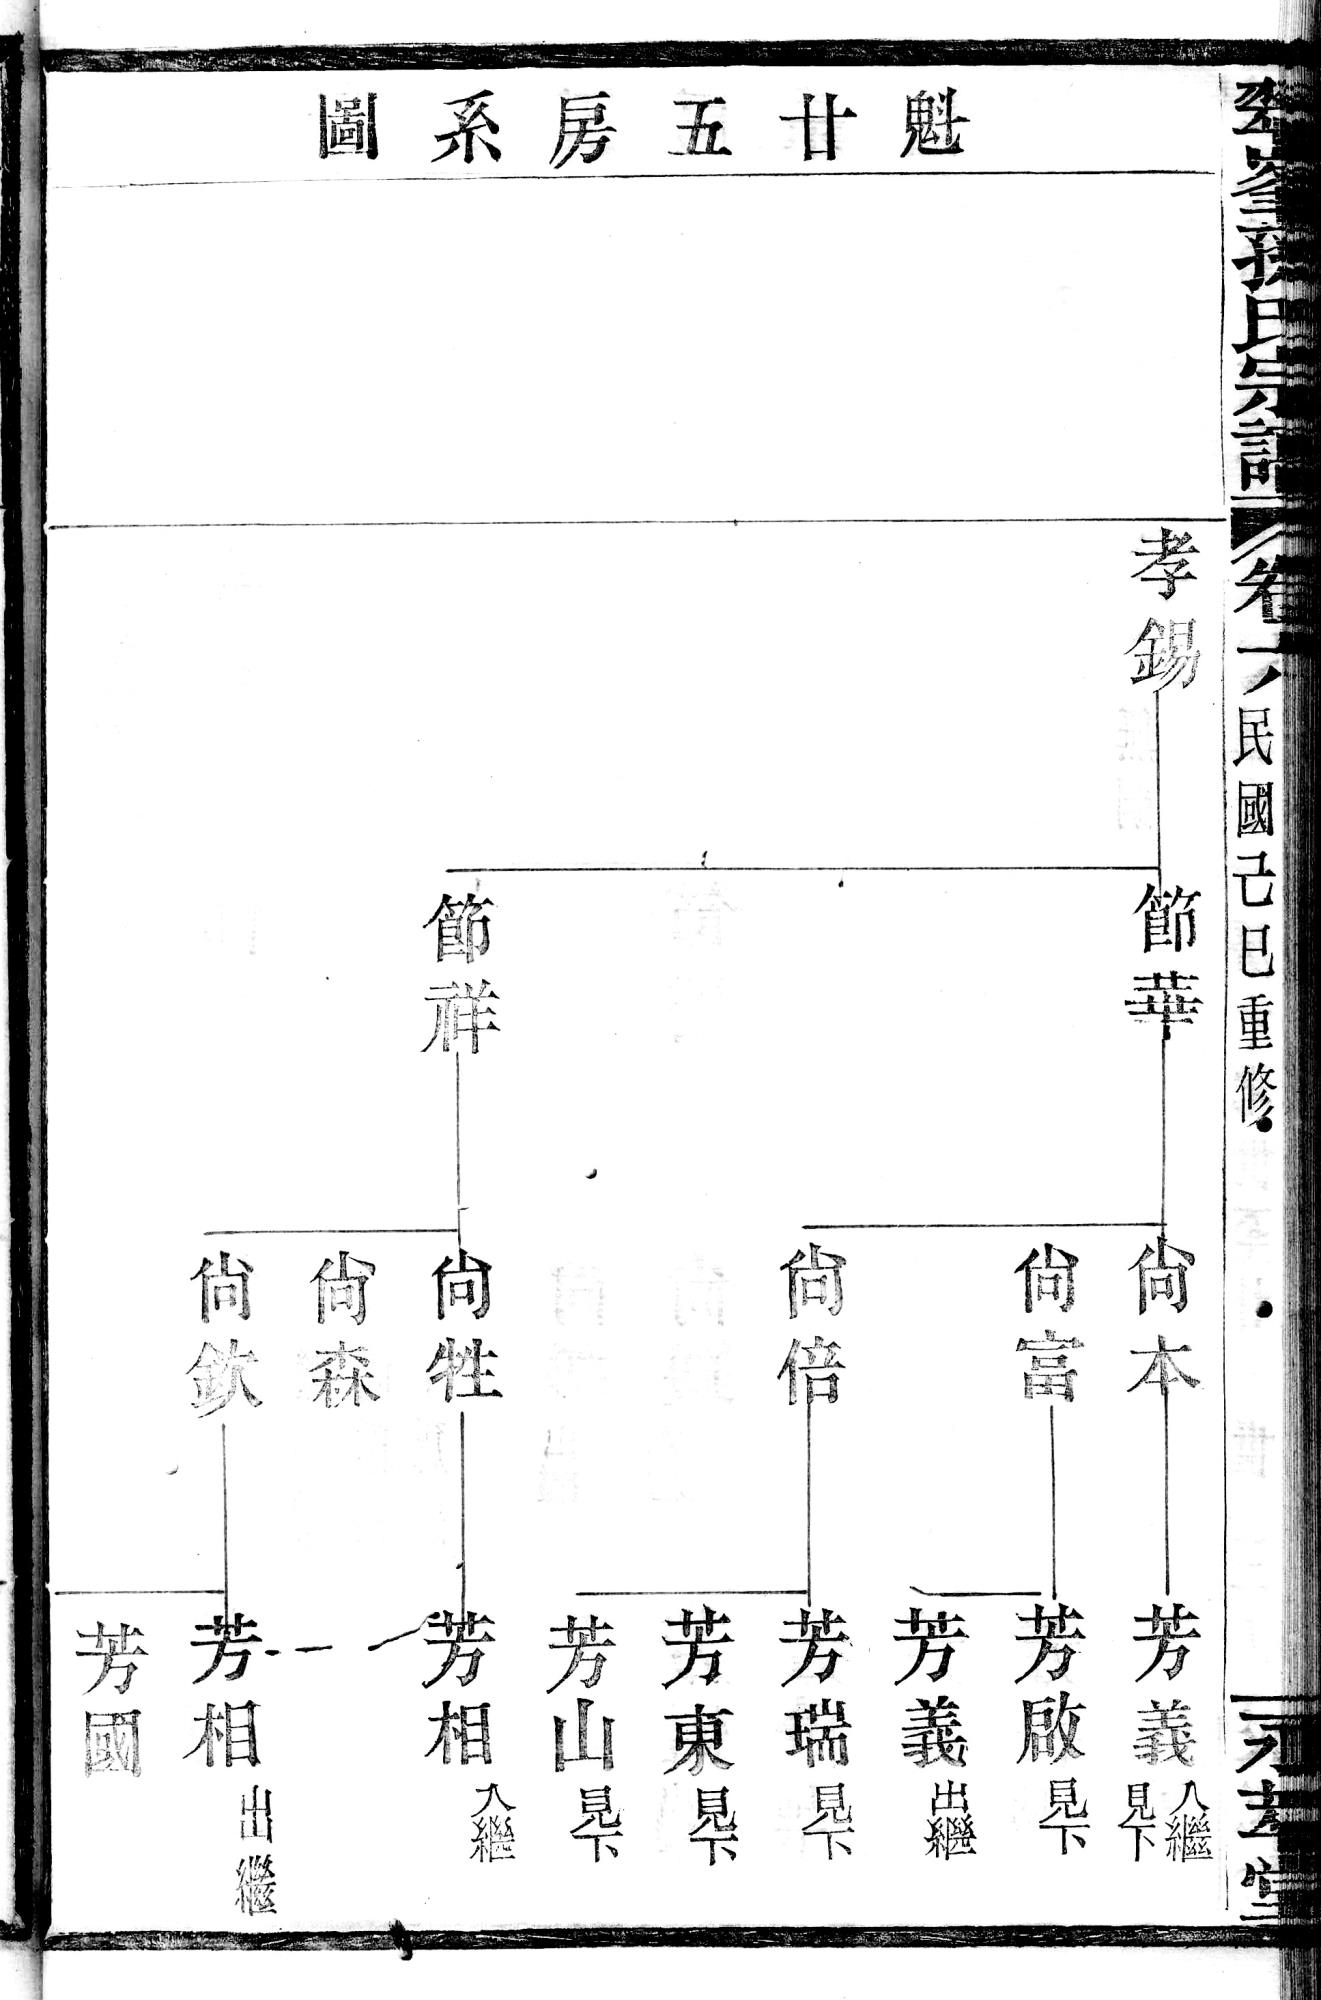 魁廿五房系圖
孫氏宗譜
卷
民國己巳重修
孝錫
節華
節祥
尙本
尙富
尙倍
尙牲
尙森
尙欽
芳義 入繼 見下
芳啟 見下
芳義 出繼
芳瑞 見下
芳東 見下
芳山 見下
芳相 入繼
芳相 出繼
芳國
永孝堂